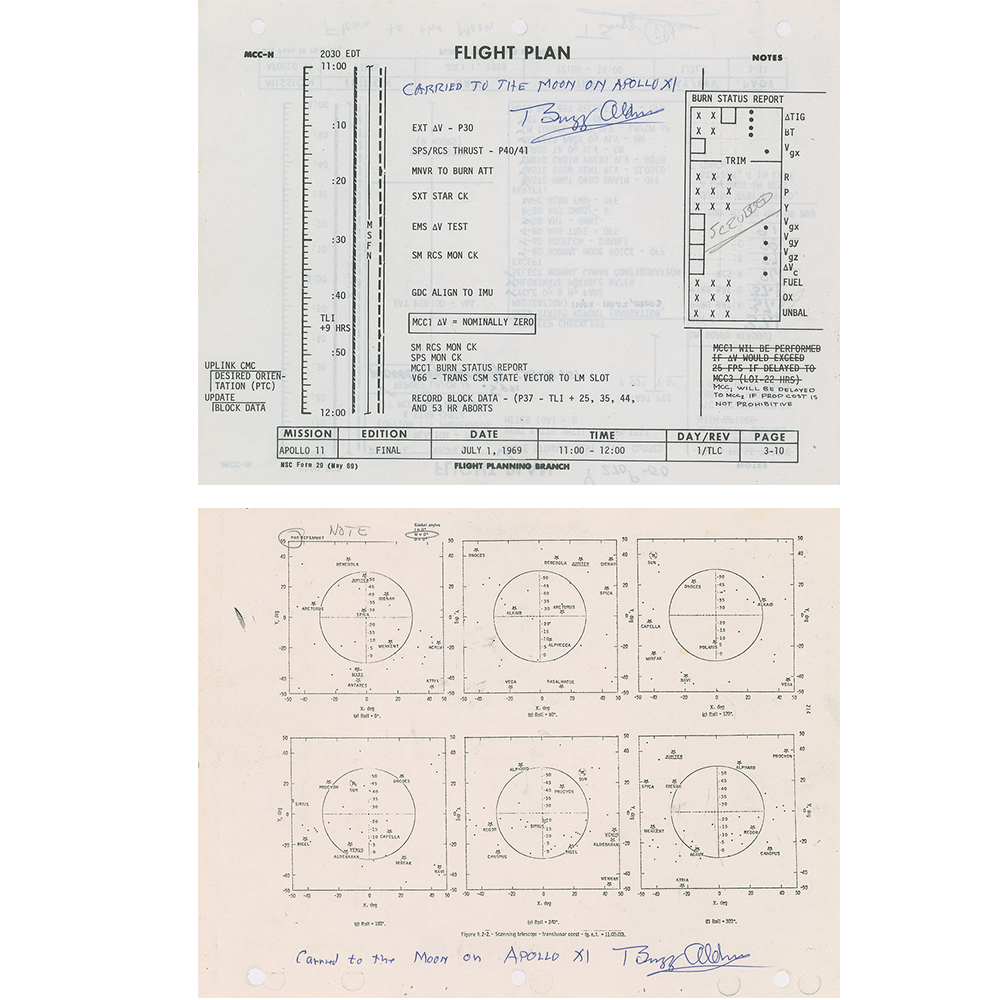 MCC-H
2030 EDT
FLIGHT PLAN
NOTES
11:00
:10
:20
:30
:40
TLI
+9 HRS
:50
12:00
MSFN
UPLINK CMC
DESIRED ORIEN-
TATION (PTC)
UPDATE
BLOCK DATA
CARRIED TO THE MOON ON APOLLO XI
Buzz Aldrin
EXT ΔV - P30
SPS/RCS THRUST - P40/41
MNVR TO BURN ATT
SXT STAR CK
EMS ΔV TEST
SM RCS MON CK
GDC ALIGN TO IMU
MCC1 ΔV = NOMINALLY ZERO
SM RCS MON CK
SPS MON CK
MCC1 BURN STATUS REPORT
V66 - TRANS CSM STATE VECTOR TO LM SLOT
RECORD BLOCK DATA - (P37 - TLI + 25, 35, 44,
and 53 HR ABORTS
BURN STATUS REPORT
X X ΔTIG
X X BT
Vgx
TRIM
X X X R
X X X P
X X X Y
SCRUBBED
Vgx
Vgy
Vgz
ΔVc
X X X FUEL
X X X OX
X X X UNBAL
MCC1 WIL BE PERFORMED
IF ΔV WOULD EXCEED
25 FPS IF DELAYED TO
MCC3 (LOI-22 HRS)
MCC1 WILL BE DELAYED
TO MCC2 IF PROP COST IS
NOT PROHIBITIVE
MISSION EDITION DATE TIME DAY/REV PAGE
APOLLO 11 FINAL JULY 1, 1969 11:00 - 12:00 1/TLC 3-10
MSC Form 29 (May 69)
FLIGHT PLANNING BRANCH
NOTE
Gimbal angles
DENEBOLA
JUPITER
GIENAH
ARCTURUS
SPICA
MENKENT
ACRUX
MARS
ANTARES
ATRIA
X, deg
(a) Roll = 0°.
DNOCES
DENEBOLA
JUPITER
GIENAH
SPICA
ALKAID
ARCTURUS
ALPHECCA
VEGA
RASALHAGUE
X, deg
(b) Roll = 60°.
SUN
DNOCES
ALKAID
CAPELLA
POLARIS
MIRFAK
NAVI
VEGA
X, deg
(c) Roll = 120°.
214
PROCYON
DNOCES
SUN
SIRIUS
RIGEL
CAPELLA
VENUS
ALDEBARAN
MIRFAK
NAVI
X, deg
(d) Roll = 180°.
ALPHARD
SUN
PROCYON
REGOR
SIRIUS
VENUS
ALDEBARAN
CANOPUS
RIGEL
MENKAR
X, deg
(e) Roll = 240°.
JUPITER
PROCYON
ALPHARD
SPICA
GIENAH
MENKENT
REGOR
ACRUX
CANOPUS
ATRIA
X, deg
(f) Roll = 300°.
Figure 9.2-2. - Scanning telescope - translunar coast - (g.e.t. = 11:00:00).
Carried to the Moon on APOLLO XI Buzz Aldrin